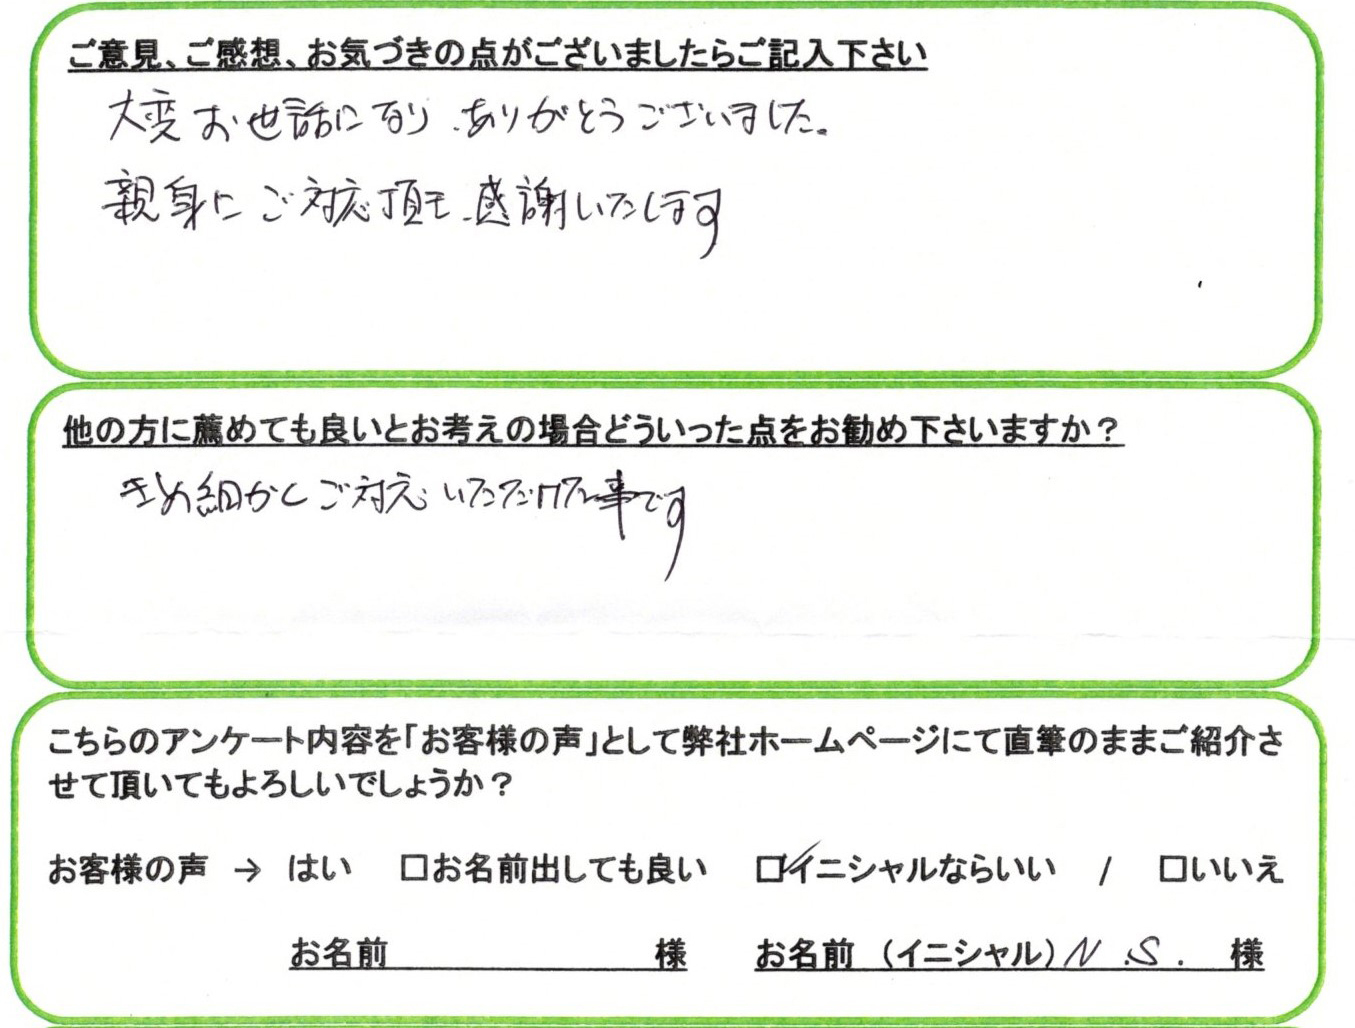 ご意見、ご感想、お気づきの点がございましたらご記入下さい
大変お世話になり、ありがとうございました。
親身にご対応頂き、感謝いたします
他の方に薦めても良いとお考えの場合どういった点をお勧め下さいますか？
きめ細かくご対応いただけた事です
こちらのアンケート内容を「お客様の声」として弊社ホームページにて直筆のままご紹介さ
せて頂いてもよろしいでしょうか？
お客様の声 → はい □お名前出しても良い ☑イニシャルならいい / □いいえ
お名前 様 お名前 （イニシャル） N.S. 様